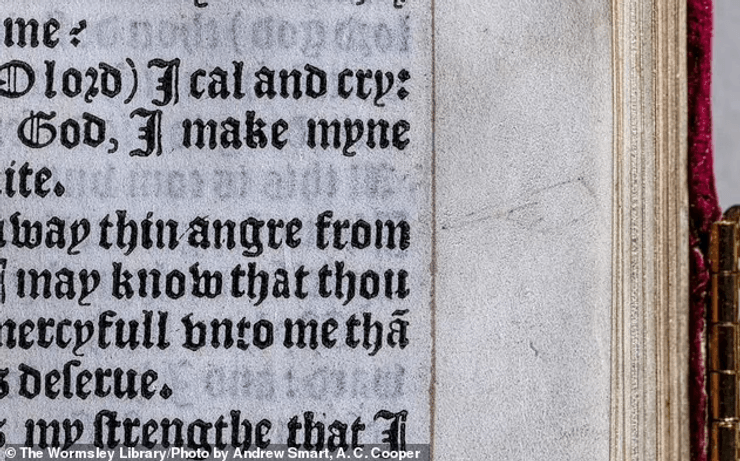 me:
O lord) I cal and cry:
God, I make myne
ite.
way thin angre from
I may know that thou
mercyfull vnto me thã
s deserue.
s my strengthe that I
© The Wormsley Library/Photo by Andrew Smart, A. C. Cooper